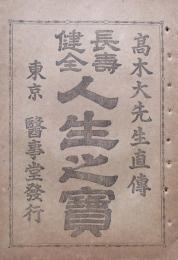 高木大先生直傳
長壽
健全
人生之寶
東京 醫事堂發行